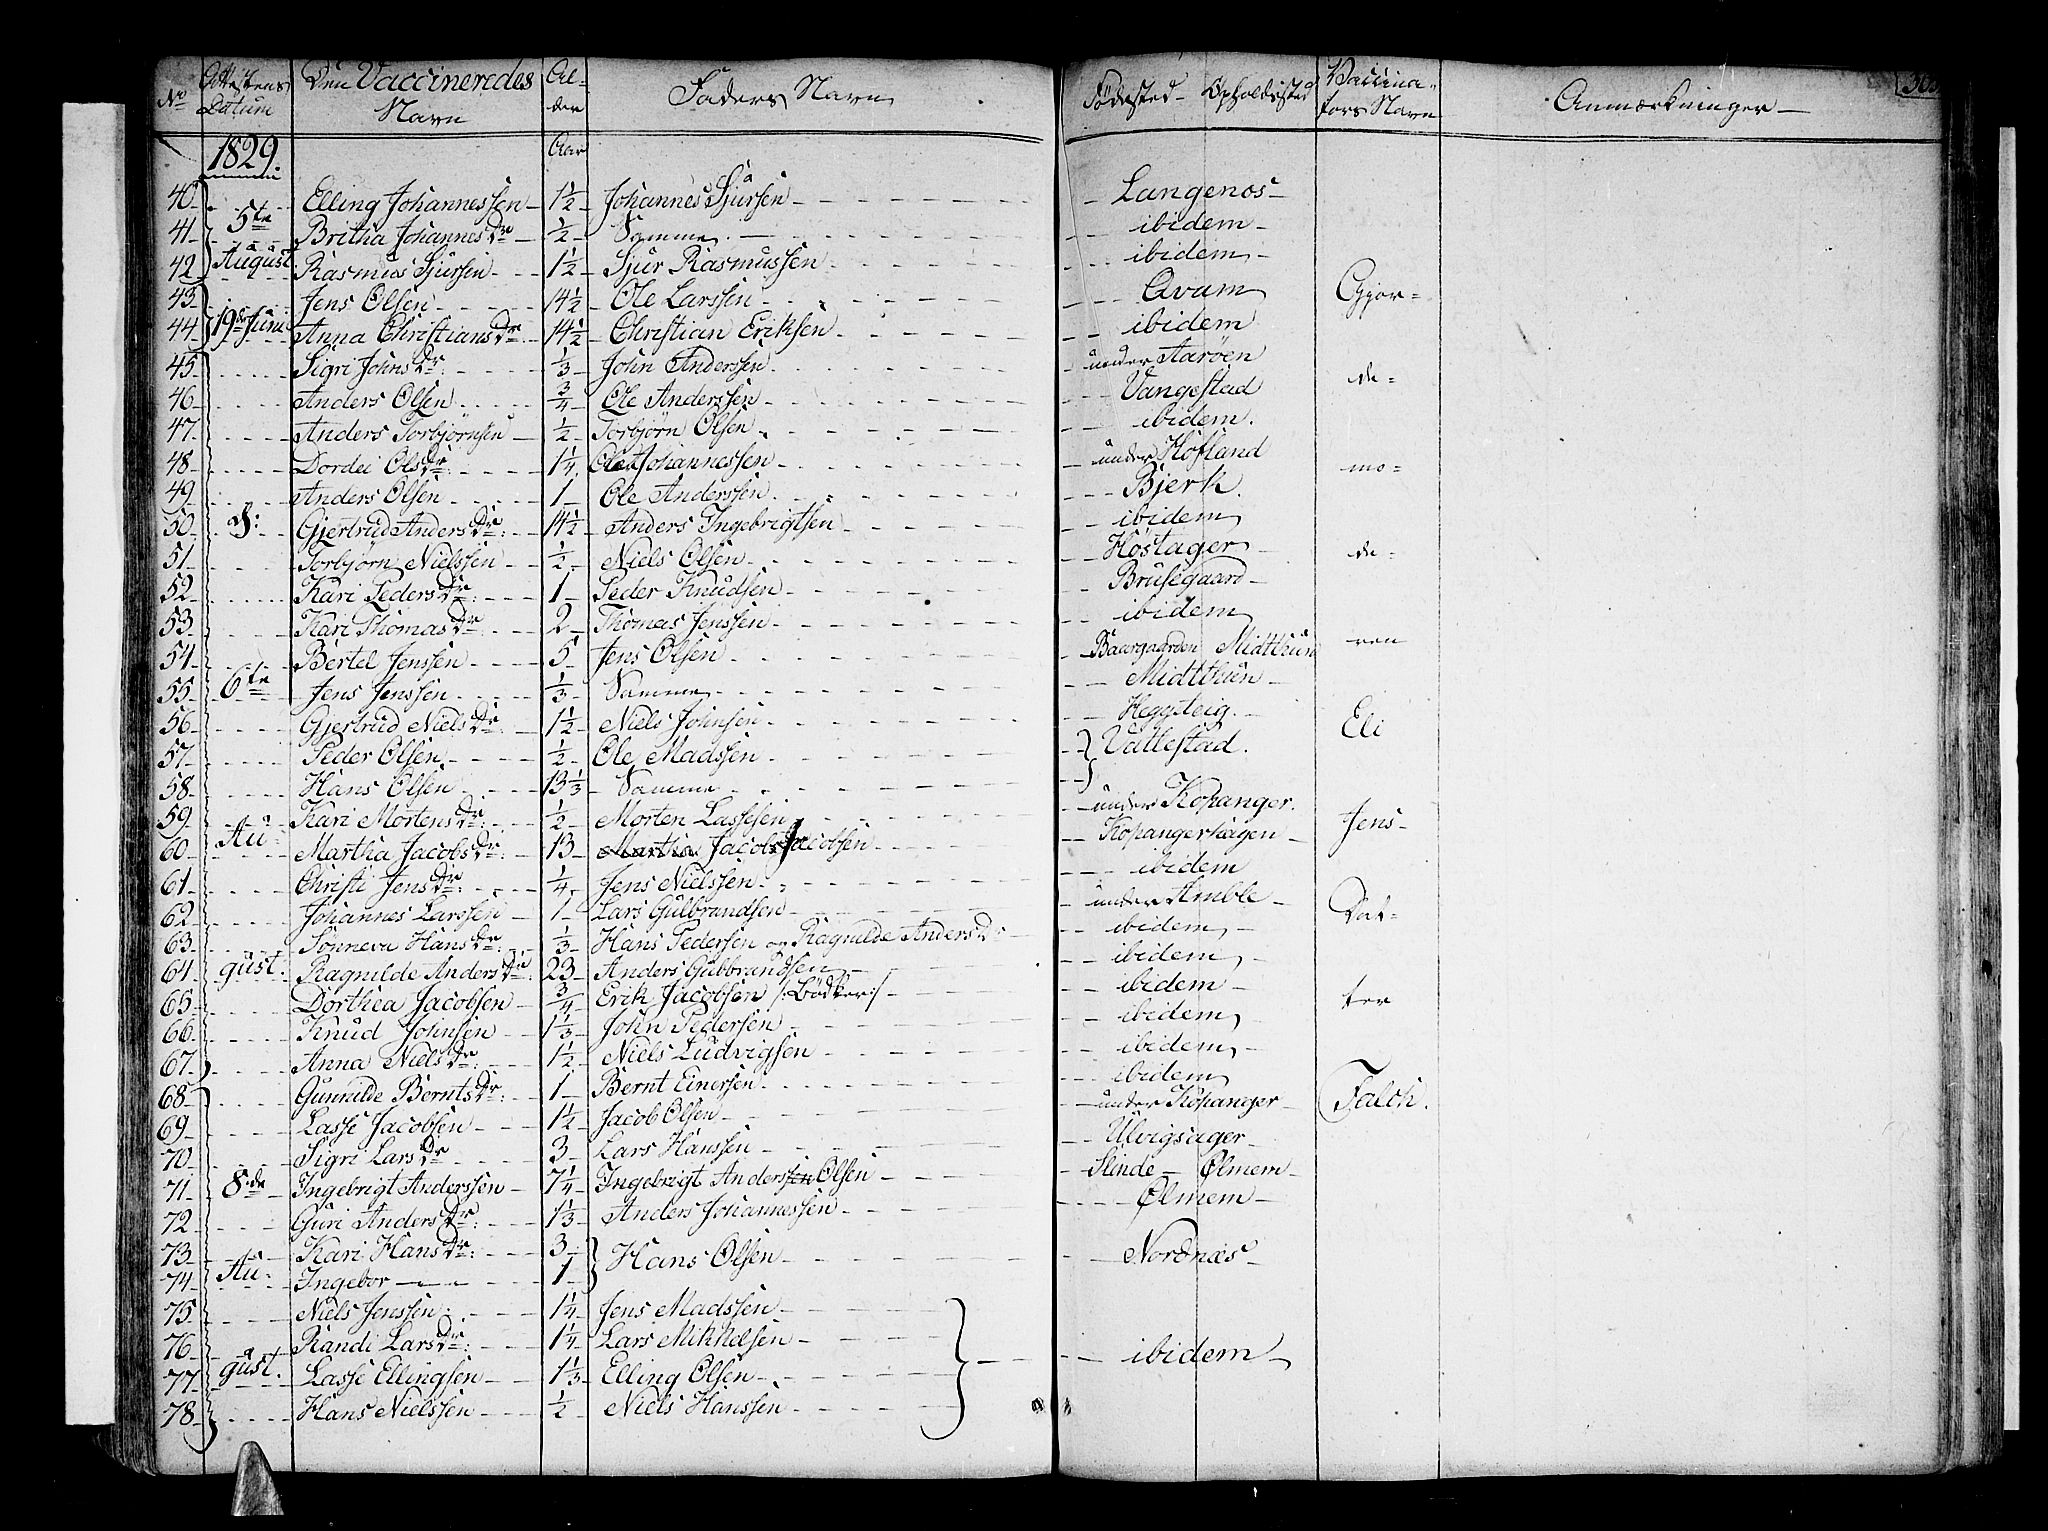 No Attestens Datum Den Vaccineredes Navn Al- der Faders Navn Födested - Opholdssted Vaccina- tors Navn Anmærkninger
1829. Aar
40 Elling Johannessen 1½ Johannes Sjursen Langenos
41 5te Britha Johannes Dr ½ Samme ibidem
42 August Rasmus Sjursen 1½ Sjur Rasmussen ibidem
43 Jens Olsen 14½ Ole Larssen Qvam Gjor-
44 19de Juni Anna Christians Dr: 14½ Christian Eriksen ibidem
45 Sigri Johns Dr: ⅓ John Anderssen under Aaröen
46 Anders Olsen ¾ Ole Anderssen Vangestad de-
47 Anders Torbjörnsen ½ Torbjörn Olsen ibidem.
48 Dordei Ols Dr: 1¼ Ole Johannessen under Hofland mo-
49 Anders Olsen 1 Ole Anderssen Bjerk.
50 d: Gjertrud Anders Dr: 14½ Anders Ingebrigtsen ibidem
51 Torbjörn Nielssen ½ Niels Olsen Höstager de-
52 Kari Peders Dr: 1 Peder Knudsen Brusegaard
53 Kari Thomas Dr: 2 Thomas Jenssen ibidem
54 Bertel Jenssen 5 Jens Olsen Baargaarden Midtthun ren
55 6te Jens Jenssen ⅓ Samme Midtthun
56 Gjertrud Niels Dr: 1½ Niels Johnsen Heggsteig. Eli
57 Peder Olsen ½ Ole Madssen Vallestad.
58 Hans Olsen 13⅓ Samme
59 Kari Mortens Dr: ½ Morten Lassesen under Kopanger.
60 Au: Martha Jacobs Dr: 13 Martha Jacobs Jacobsen Kopangerhagen Jens-
61 Christi Jens Dr: ¼ Jens Nielssen ibidem
62 Johannes Larssen 1 Lars Gulbrandsen under Amble Dat-
63 Sönneva Hans Dr: ⅓ Hans Pedersen og Ragnilde Anders Dr ibidem
64 gust. Ragnilde Anders Dr: 23 Anders Gubbrandsen ibidem
65 Dorthea Jacobsen ¾ Erik Jacobsen /:Bödker:/ ibidem ter
66 Knud Johnsen 1⅓ John Pedersen ibidem
67 Anna Niels Dr 1½ Niels Ludvigsen ibidem
68 Gunnilde Bernts Dr: 1 Bernt Einersen ibidem
69 Lasse Jacobsen 1½ Jacob Olsen under Kopanger Falch.
70 Sigri Lars Dr 3 Lars Hanssen Ulvigsager
71 8de Ingebrigt Anderssen 7¼ Ingebrigt Anderssen Olsen Slinde Ølmem
72 Guri Anders Dr: 1⅓ Anders Johannessen Ølmem
73 Kari Hans Dr: 3 Hans Olsen Nordnæs
74 Au: Ingebor 1
75 Niels Jenssen 1¼ Jens Madssen
76 Randi Lars Dr: 1¼ Lars Mikkelsen ibidem
77 gust. Lasse Ellingsen 1⅓ Elling Olsen
78 Hans Nielssen ½ Niels Hanssen